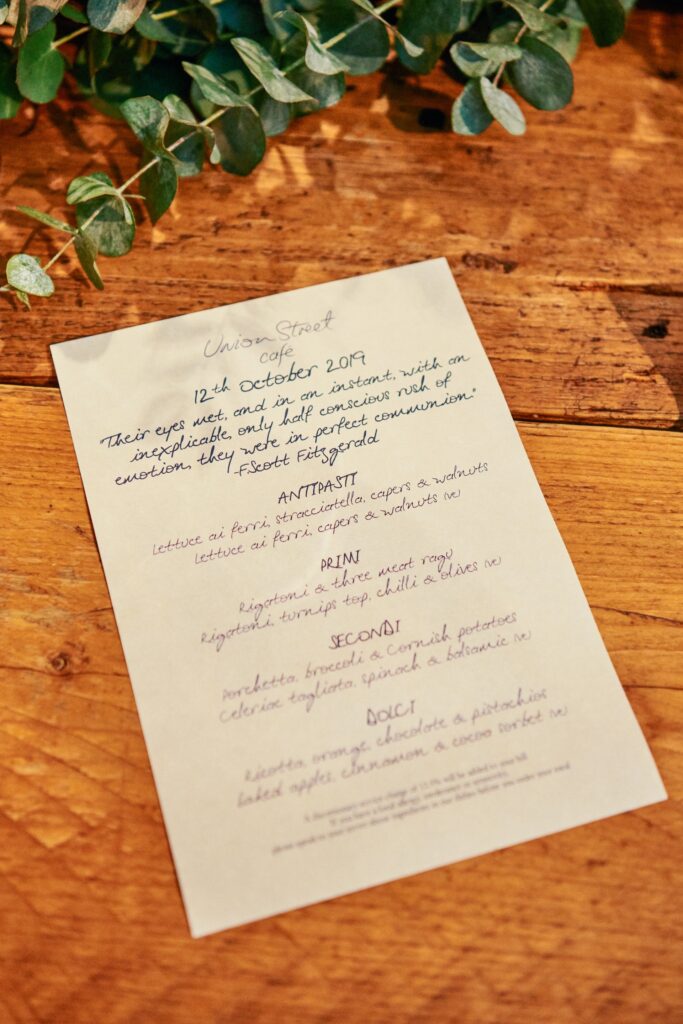 Union Street
café
12th October 2019
"Their eyes met, and in an instant, with an
inexplicable, only half conscious rush of
emotion, they were in perfect communion."
-F.Scott Fitzgerald
ANTIPASTI
Lettuce ai ferri, stracciatella, capers & walnuts
Lettuce ai ferri, capers & walnuts (ve)
PRIMI
Rigatoni & three meat ragu
Rigatoni, turnips top, chilli & olives (ve)
SECONDI
Porchetta, broccoli & Cornish potatoes
Celeriac tagliata, spinach & balsamic (ve)
DOLCI
Ricotta, orange, chocolate & pistachios
baked apples, cinnamon & cocoa sorbet (ve)
A discretionary service charge of 12.5% will be added to your bill.
If you have a food allergy, intolerance or sensitivity,
please speak to your server about ingredients in our dishes before you order your meal.